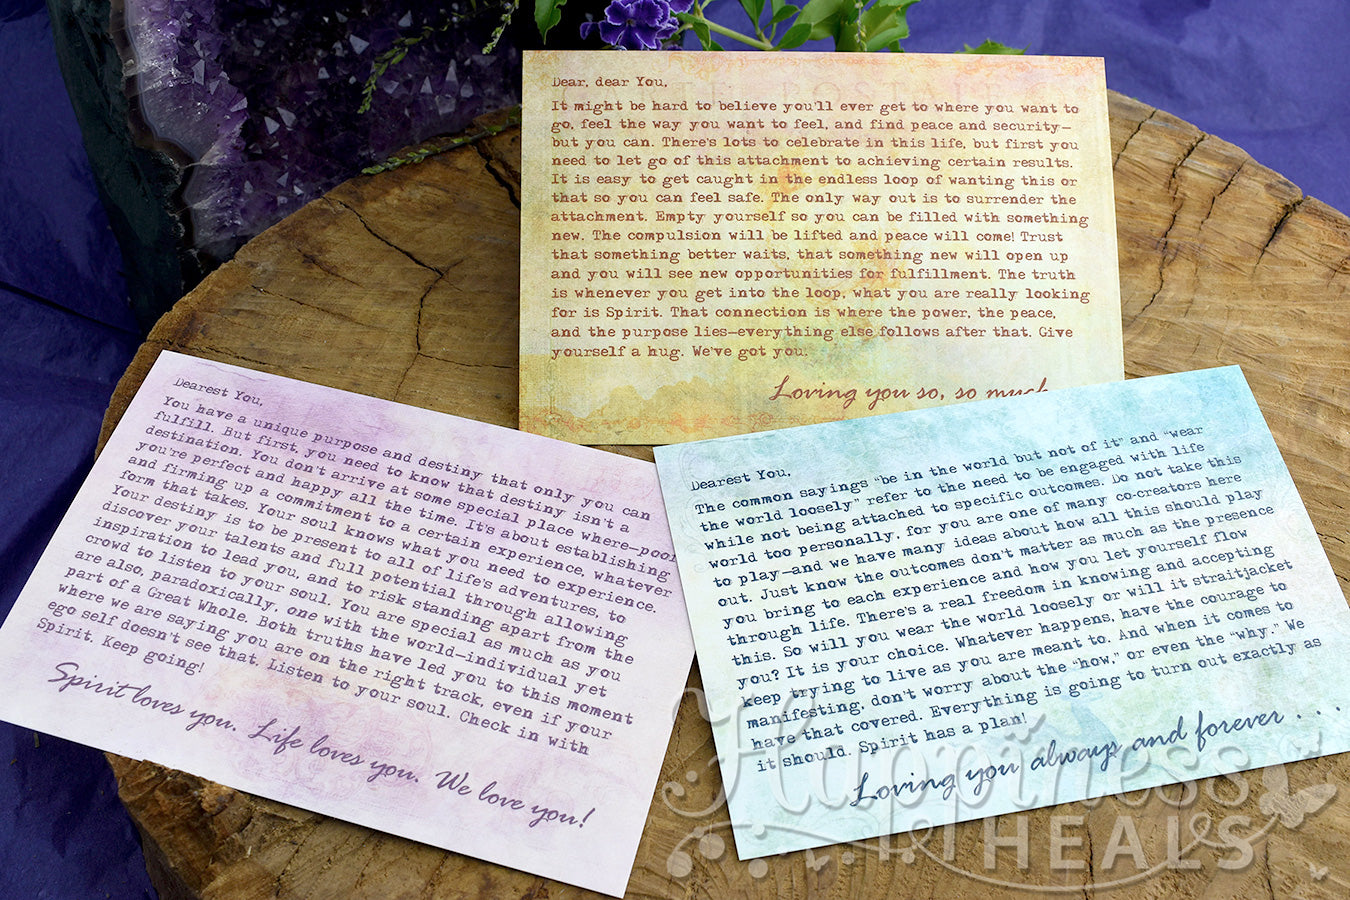 Dear, dear You,
It might be hard to believe you'll ever get to where you want to
go, feel the way you want to feel, and find peace and security—
but you can. There's lots to celebrate in this life, but first you
need to let go of this attachment to achieving certain results.
It is easy to get caught in the endless loop of wanting this or
that so you can feel safe. The only way out is to surrender the
attachment. Empty yourself so you can be filled with something
new. The compulsion will be lifted and peace will come! Trust
that something better waits, that something new will open up
and you will see new opportunities for fulfillment. The truth
is whenever you get into the loop, what you are really looking
for is Spirit. That connection is where the power, the peace,
and the purpose lies—everything else follows after that. Give
yourself a hug. We've got you.
Loving you so, so much
Dearest You,
You have a unique purpose and destiny that only you can
fulfill. But first, you need to know that destiny isn't a
destination. You don't arrive at some special place where—poof
you're perfect and happy all the time. It's about establishing
and firming up a commitment to a certain experience, whatever
form that takes. Your soul knows what you need to experience.
Your destiny is to be present to all of life's adventures, to
discover your talents and full potential through allowing
inspiration to lead you, and to risk standing apart from the
crowd to listen to your soul. You are special as much as you
are also, paradoxically, one with the world—individual yet
part of a Great Whole. Both truths have led you to this moment
where we are saying you are on the right track, even if your
ego self doesn't see that. Listen to your soul. Check in with
Spirit. Keep going!
Spirit loves you. Life loves you. We love you!
Dearest You,
The common sayings "be in the world but not of it" and "wear
the world loosely" refer to the need to be engaged with life
while not being attached to specific outcomes. Do not take this
world too personally, for you are one of many co-creators here
to play—and we have many ideas about how all this should play
out. Just know the outcomes don't matter as much as the presence
you bring to each experience and how you let yourself flow
through life. There's a real freedom in knowing and accepting
this. So will you wear the world loosely or will it straitjacket
you? It is your choice. Whatever happens, have the courage to
keep trying to live as you are meant to. And when it comes to
manifesting, don't worry about the "how," or even the "why." We
have that covered. Everything is going to turn out exactly as
it should. Spirit has a plan!
Loving you always and forever . . . .
Happiness
HEALS